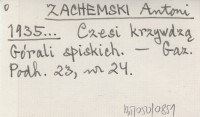 0 ZACHEMSKI Antoni
1935... Czesi krzywdzą
Górali spiskich. — Gaz.
Podh. 23, nr 24.